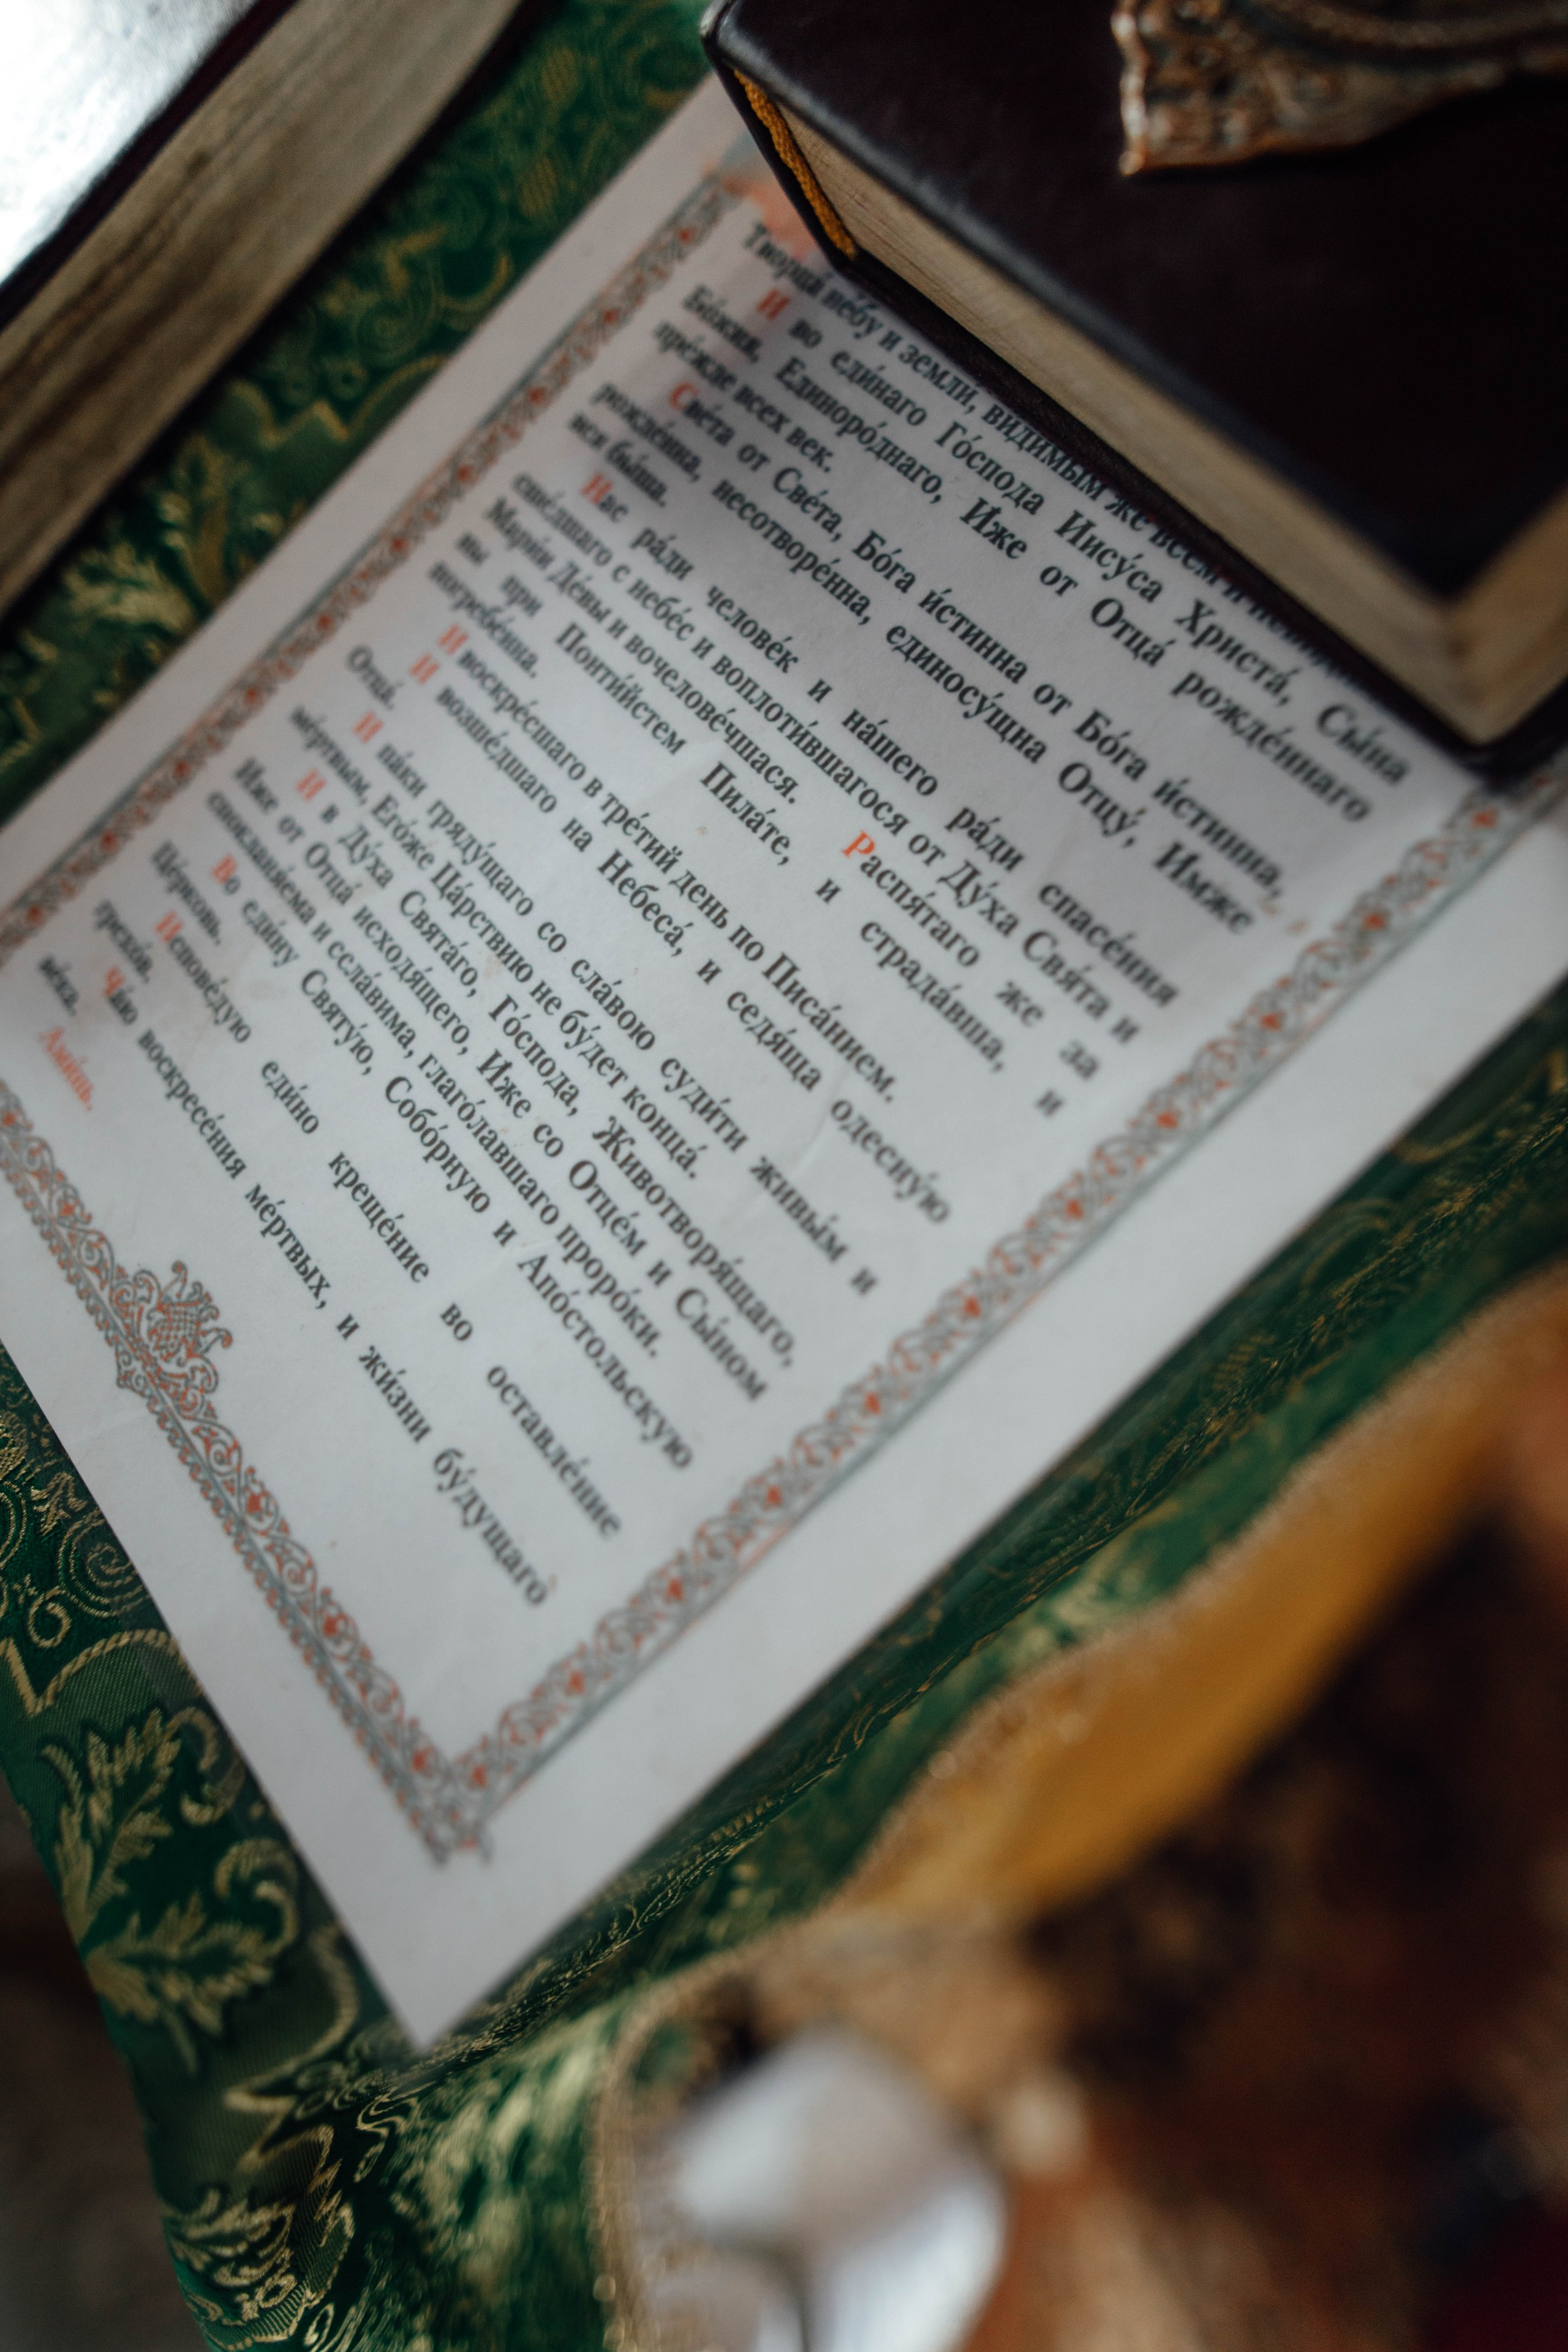 Творца́ не́бу и земли́, видимым же всем и
И во еди́наго Го́спода Иису́са Христа́, Сы́на
Бо́жия, Единоро́днаго, И́же от Отца́ рожде́ннаго
пре́жде всех век.
Све́та от Све́та, Бо́га и́стинна от Бо́га и́стинна,
рожде́нна, несотворе́нна, единосу́щна Отцу́, Имже
вся бы́ша.
Нас ра́ди челове́к и на́шего ра́ди спасе́ния
сше́дшаго с небе́с и воплоти́вшагося от Ду́ха Свя́та и
Мари́и Де́вы и вочелове́чшася. Распя́таго же за
ны при Понти́йстем Пила́те, и страда́вша, и
погребе́нна.
И воскре́сшаго в тре́тий день по Писа́нием.
И возше́дшаго на Небеса́, и седя́ща одесну́ю
Отца́.
И па́ки гряду́щаго со сла́вою суди́ти живы́м и
ме́ртвым, Его́же Ца́рствию не бу́дет конца́.
И в Ду́ха Свята́го, Го́спода, Животворя́щаго,
Иже от Отца́ исходя́щего, Иже со Отце́м и Сы́ном
спокланя́ема и ссла́вима, глаго́лавшаго проро́ки.
Во еди́ну Святу́ю, Собо́рную и Апо́стольскую
Це́рковь.
Испове́дую еди́но креще́ние во оставле́ние
грехо́в.
Ча́ю воскресе́ния ме́ртвых, и жи́зни бу́дущаго
ве́ка. Ами́нь.